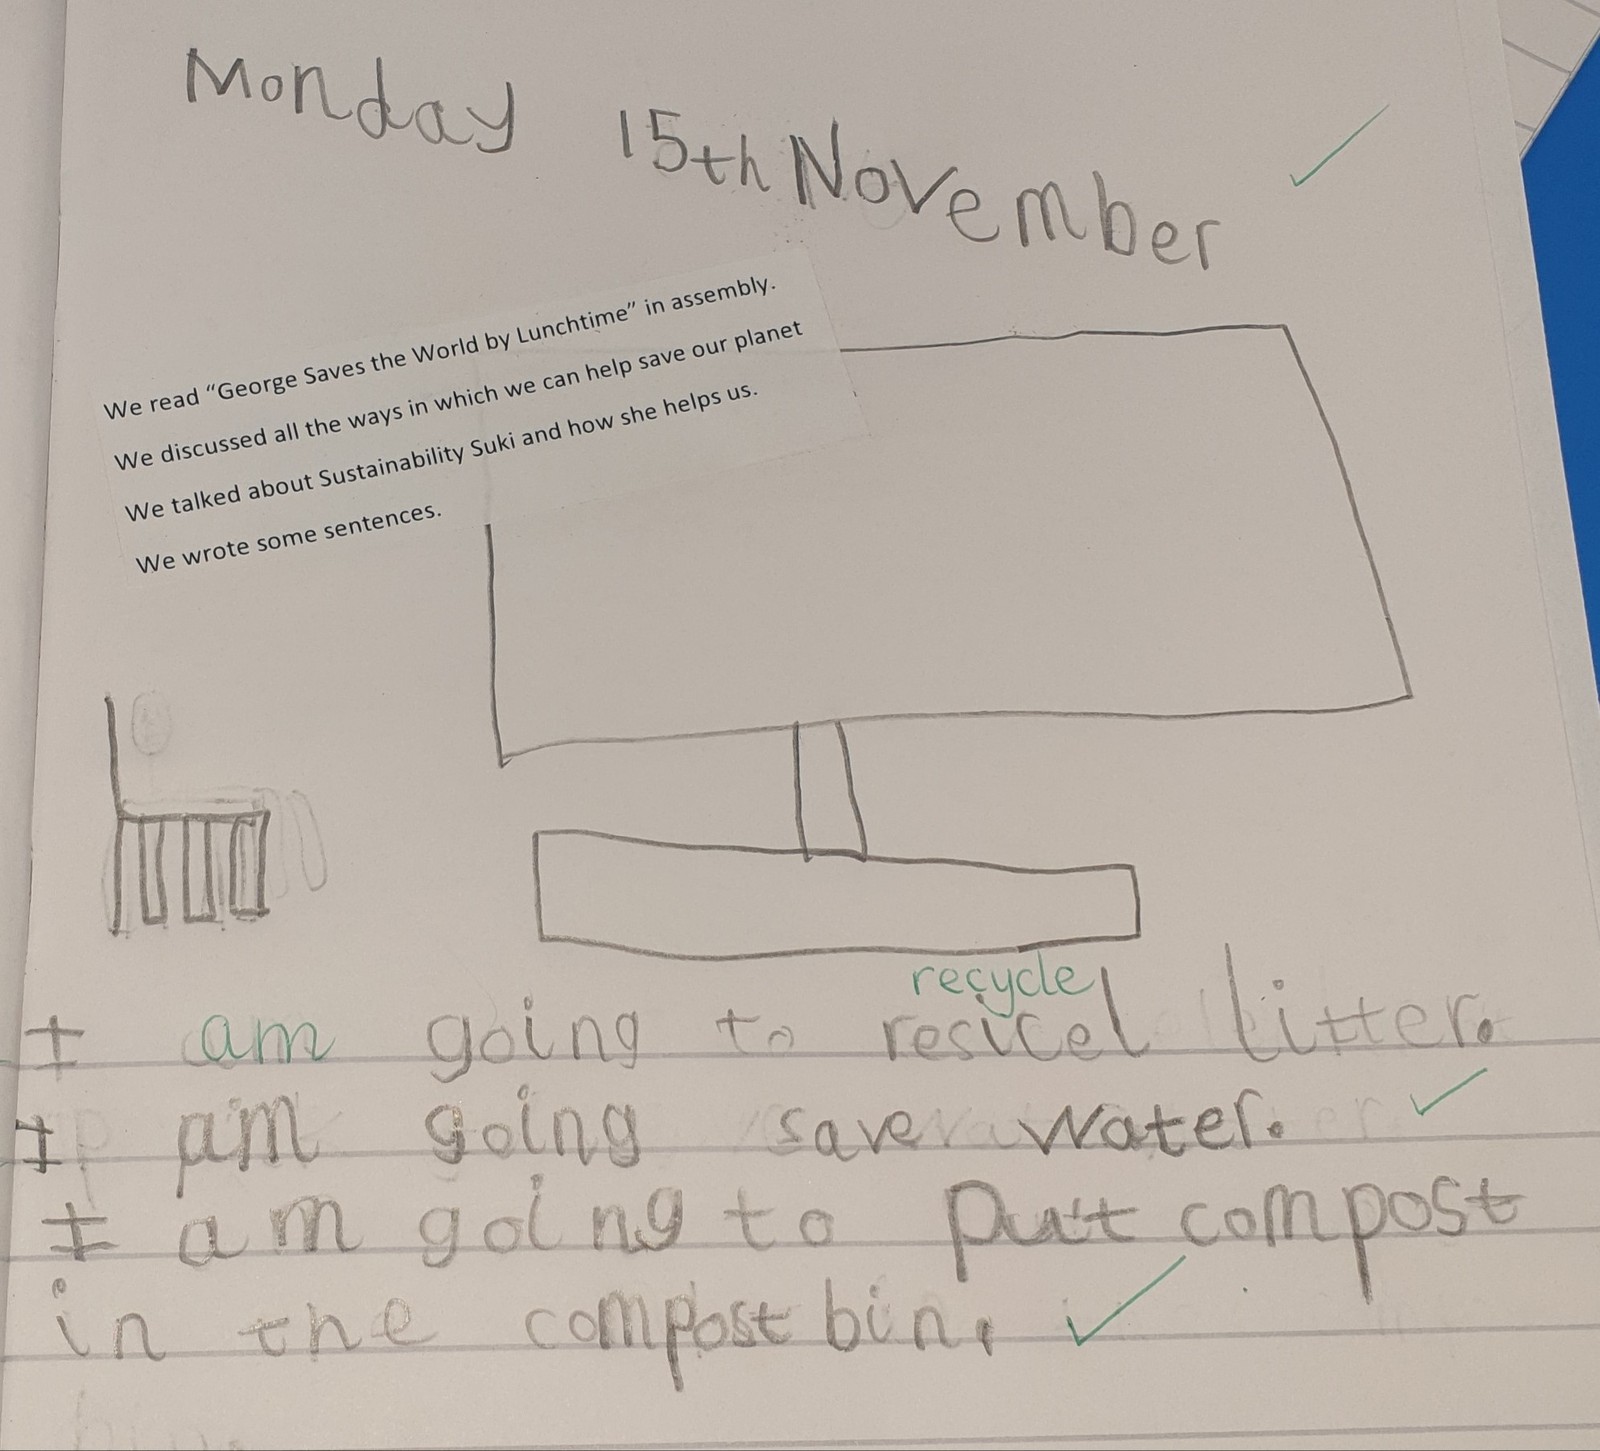 Monday 15th November
We read “George Saves the World by Lunchtime” in assembly.
We discussed all the ways in which we can help save our planet
We talked about Sustainability Suki and how she helps us.
We wrote some sentences.
recycle
I am going to resicel litter.
I am going save water.
I am going to putt compost
in the compost bin.